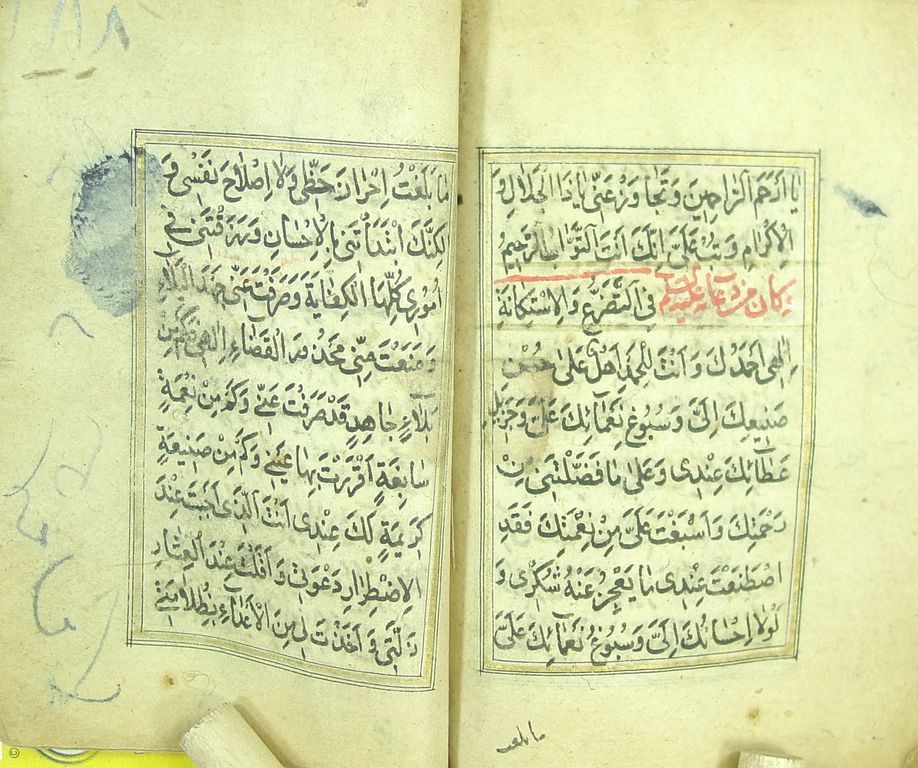 يَا اَرْحَمَ الرَّاحِمِينَ وَتَجَاوَزْ عَنِّي يَا ذَا الْجَلَالِ وَ
الْاِكْرَامِ وَتُبْ عَلَيَّ اِنَّكَ اَنْتَ التَّوَّابُ الرَّحِيمُ
وكان من دعائه عليه السلام فِي التَّضَرُّعِ وَالْاِسْتِكَانَةِ
اِلٰهِي اَحْمَدُكَ وَاَنْتَ لِلْحَمْدِ اَهْلٌ عَلَىٰ حُسْنِ
صَنِيعِكَ اِلَيَّ وَسُبُوغِ نَعْمَائِكَ عَلَيَّ وَجَزِيلِ
عَطَائِكَ عِنْدِي وَعَلَىٰ مَا فَضَّلْتَنِي مِنْ
رَحْمَتِكَ وَاَسْبَغْتَ عَلَيَّ مِنْ نِعْمَتِكَ فَقَدِ
اصْطَنَعْتَ عِنْدِي مَا يَعْجِزُ عَنْهُ شُكْرِي وَ
لَوْلَا اِحْسَانُكَ اِلَيَّ وَسُبُوغُ نَعْمَائِكَ عَلَيَّ
ما بلغت
مَا بَلَغْتُ اِحْرَازَ حَظِّي وَلَا اِصْلَاحَ نَفْسِي وَ
لٰكِنَّكَ ابْتَدَأْتَنِي بِالْاِحْسَانِ وَرَزَقْتَنِي فِي
اُمُورِي كُلِّهَا الْكِفَايَةَ وَصَرَفْتَ عَنِّي جَهْدَ الْبَلَاءِ
وَمَنَعْتَ مِنِّي مَحْذُورَ الْقَضَاءِ اِلٰهِي فَكَمْ مِنْ
بَلَاءٍ جَاهِدٍ قَدْ صَرَفْتَ عَنِّي وَكَمْ مِنْ نِعْمَةٍ
سَابِغَةٍ اَقْرَرْتَ بِهَا عَيْنِي وَكَمْ مِنْ صَنِيعَةٍ
كَرِيمَةٍ لَكَ عِنْدِي اَنْتَ الَّذِي اَجَبْتَ عِنْدَ
الْاِضْطِرَارِ دَعْوَتِي وَاَقَلْتَ عِنْدَ الْعِثَارِ
زَلَّتِي وَاَخَذْتَ لِي مِنَ الْاَعْدَاءِ بِظُلَامَتِي